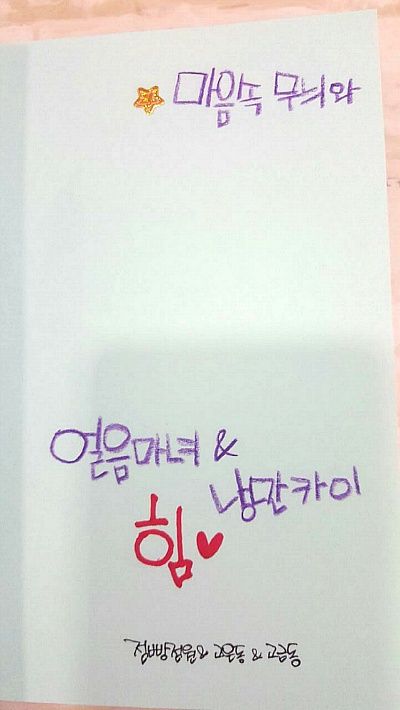 마음속 무늬와
얼음마녀 &
냥만카이
힘♥
점빵점원 & 고은동 & 고금동